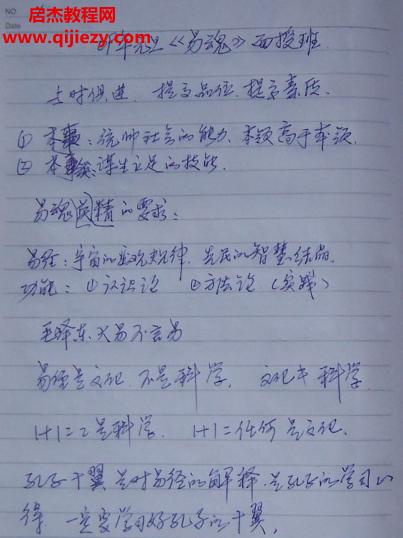 NO
启杰教程网
Date
www.qijiezy.com
年元旦《易魂》面授班
与时俱进、提高品位、提高素质。
① 本事:统帅社会的能力、本领高于本领
② 本领:谋生立足的技能
易魂 精的要求:
易经:宇宙的宏观规律、先民的智慧结晶。
功能: ①认识论 ②方法论(实践)
毛泽东大易不言易
易经是文化 不是科学, 文化≠科学
1+1=2是科学、 1+1=任何是文化、
孔子十翼是对易经的解释,是孔子的学习心
得 一定要学习好孔子的十翼,